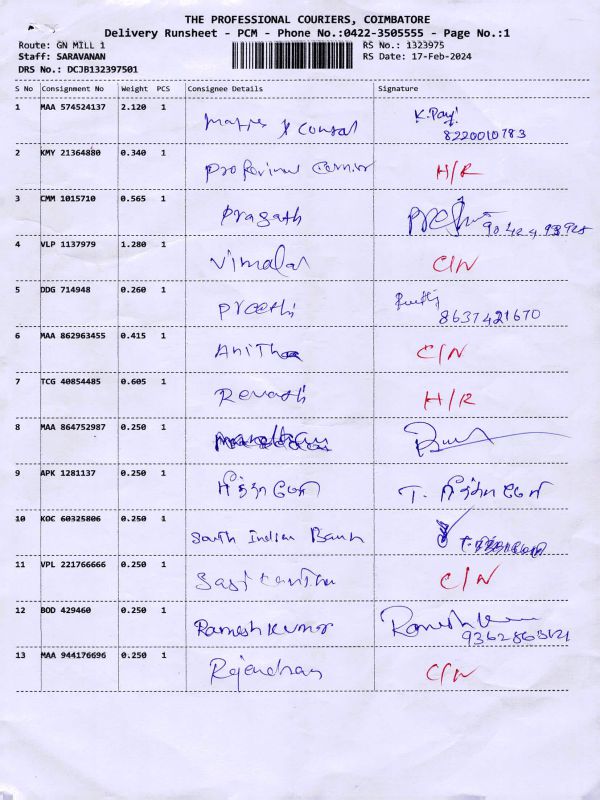 THE PROFESSIONAL COURIERS, COIMBATORE
Delivery Runsheet - PCM - Phone No.:0422-3505555 - Page No.:1
Route: GN MILL 1 RS No.: 1323975
Staff: SARAVANAN RS Date: 17-Feb-2024
DRS No.: DCJB132397501
S No Consignment No Weight PCS Consignee Details Signature
1 MAA 574524137 2.120 1
8220010783
2 KMY 21364880 0.340 1 H/R
3 CMM 1015710 0.565 1 Pragath
4 VLP 1137979 1.280 1 Vimalar C/N
5 DDG 714948 0.260 1 Preethi
8637421670
6 MAA 862963455 0.415 1 Anitha C/N
7 TCG 40854485 0.605 1 Revathi H/R
8 MAA 864752987 0.250 1
9 APK 1281137 0.250 1
10 KOC 60325806 0.250 1 South Indian Bank
11 VPL 221766666 0.250 1 C/N
12 BOD 429460 0.250 1 Ramesh Kumar
13 MAA 944176696 0.250 1 Rajendran C/N